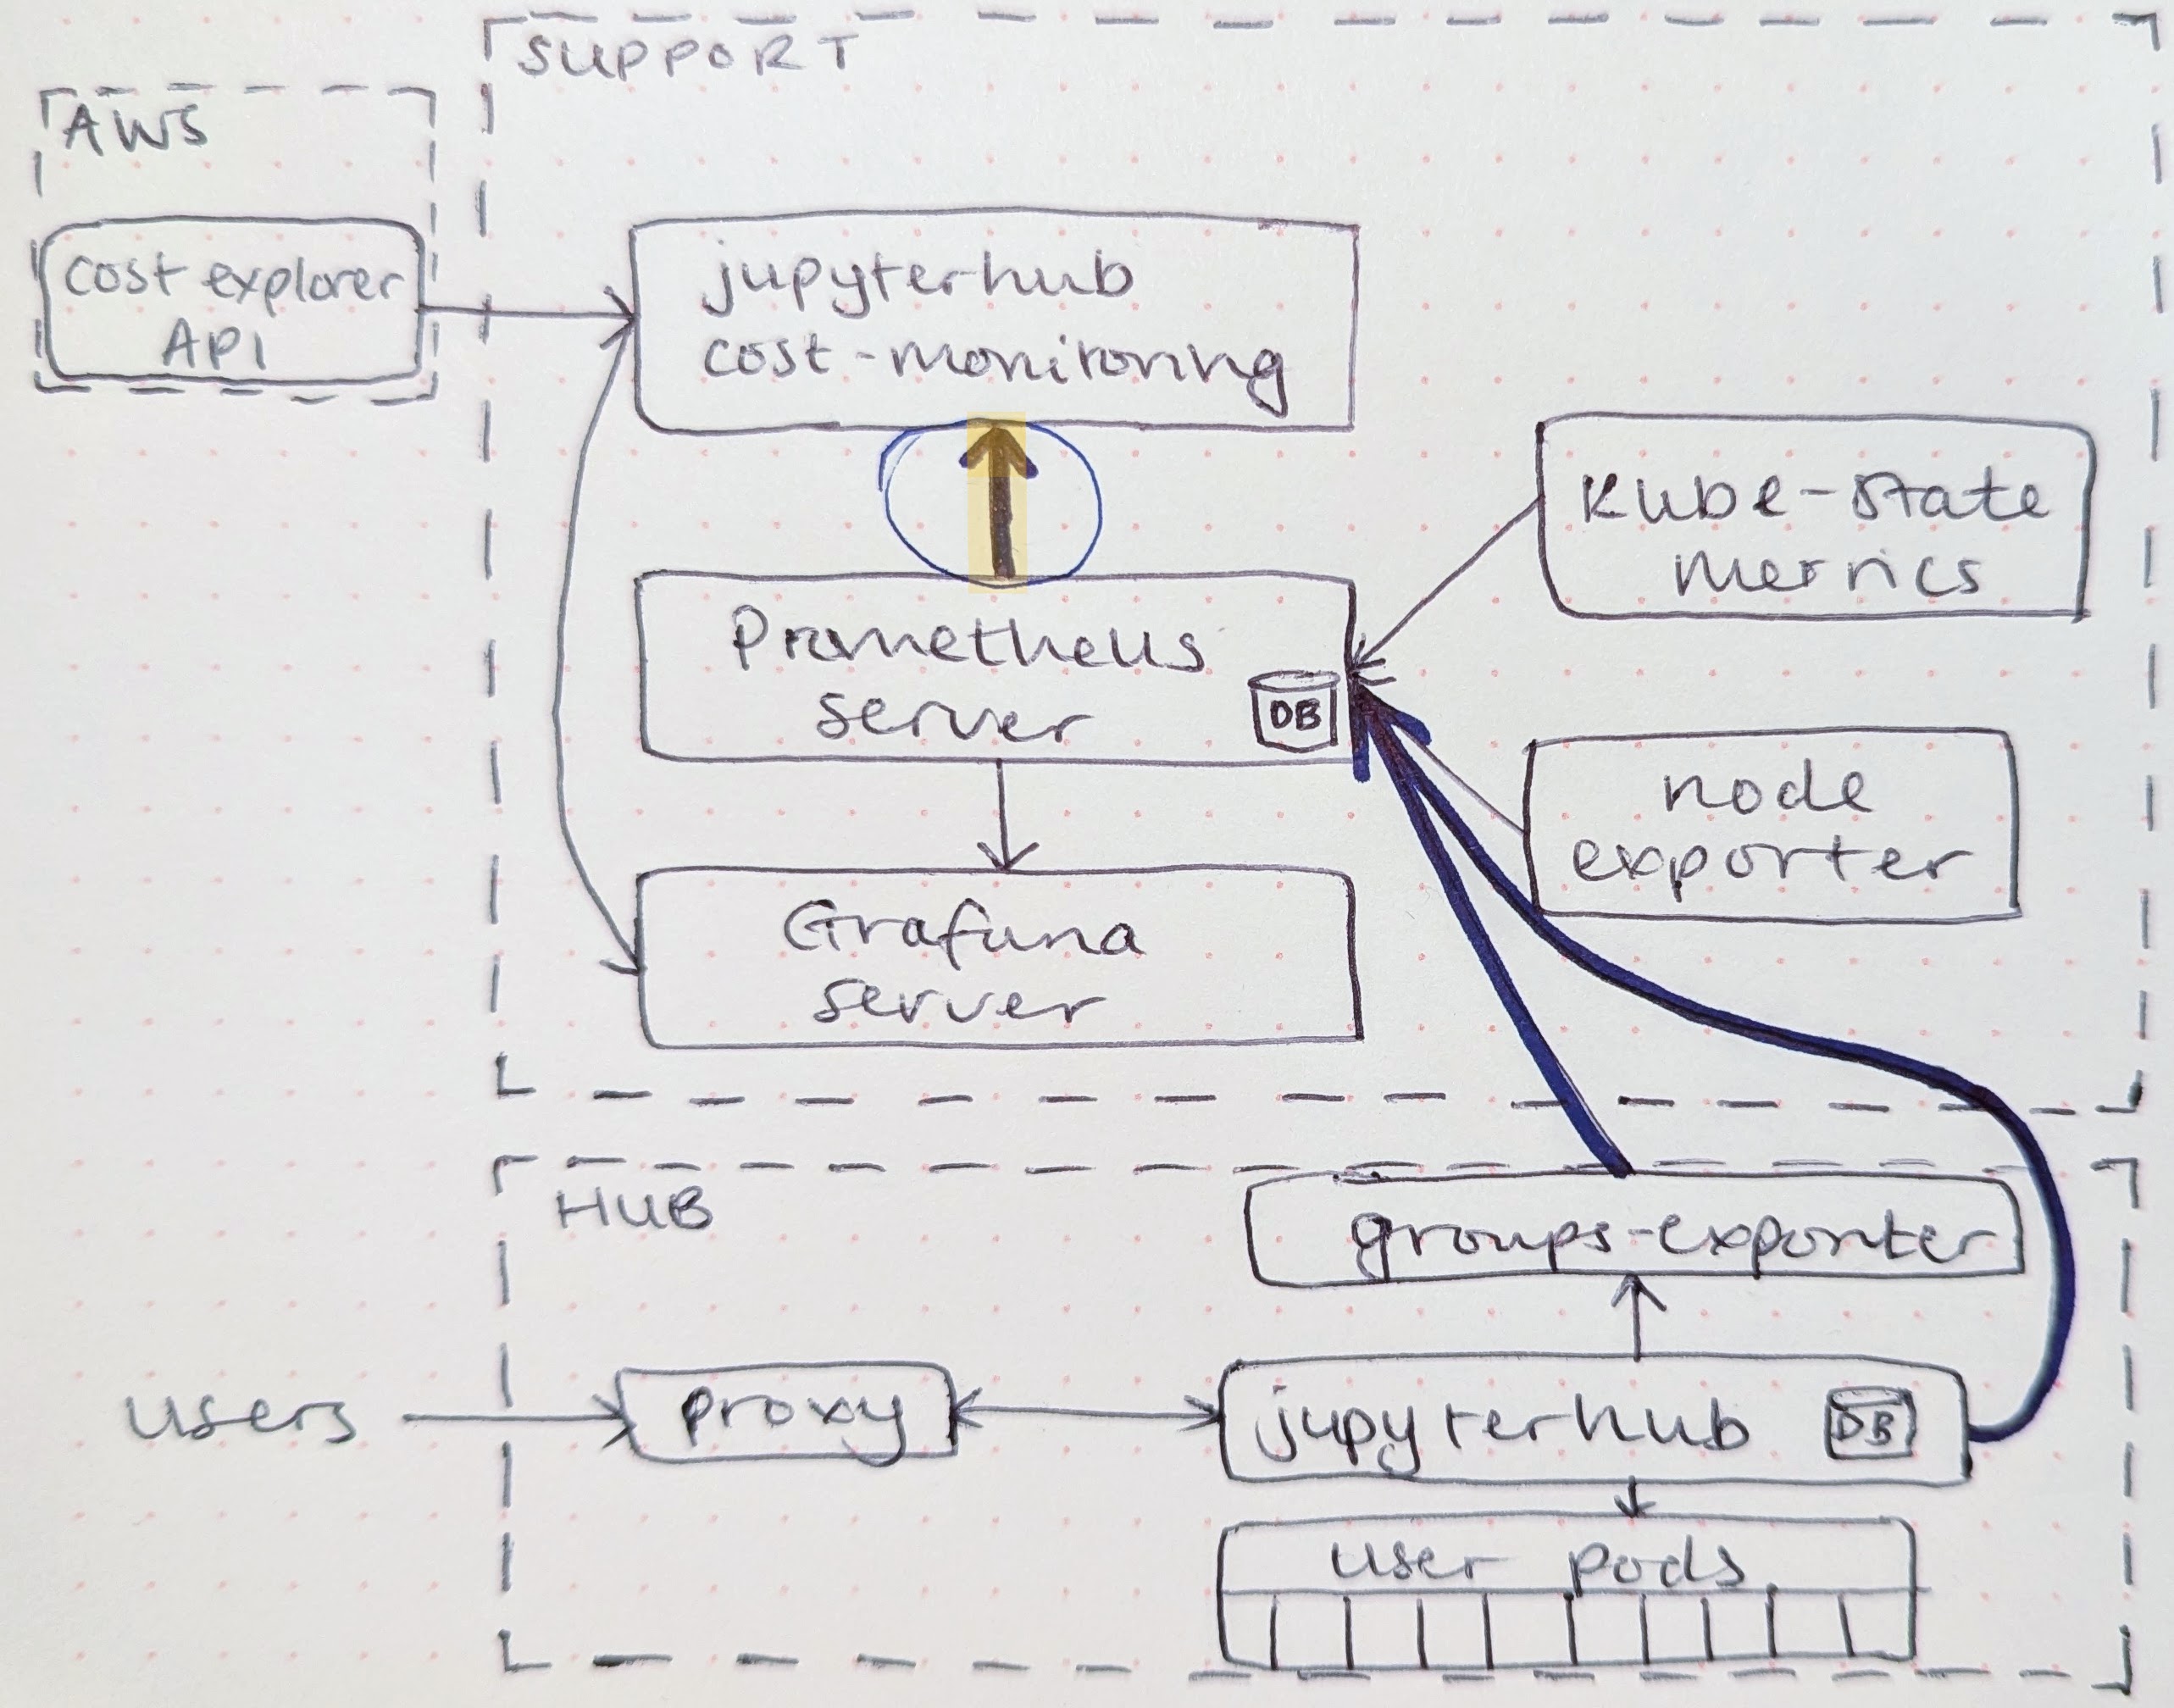 SUPPORT
AWS
cost explorer
API
jupyterhub
cost-monitoring
Kube-state
metrics
Prometheus
server
DB
node
exporter
Grafana
server
HUB
groups-exporter
users
proxy
jupyterhub
DB
user pods